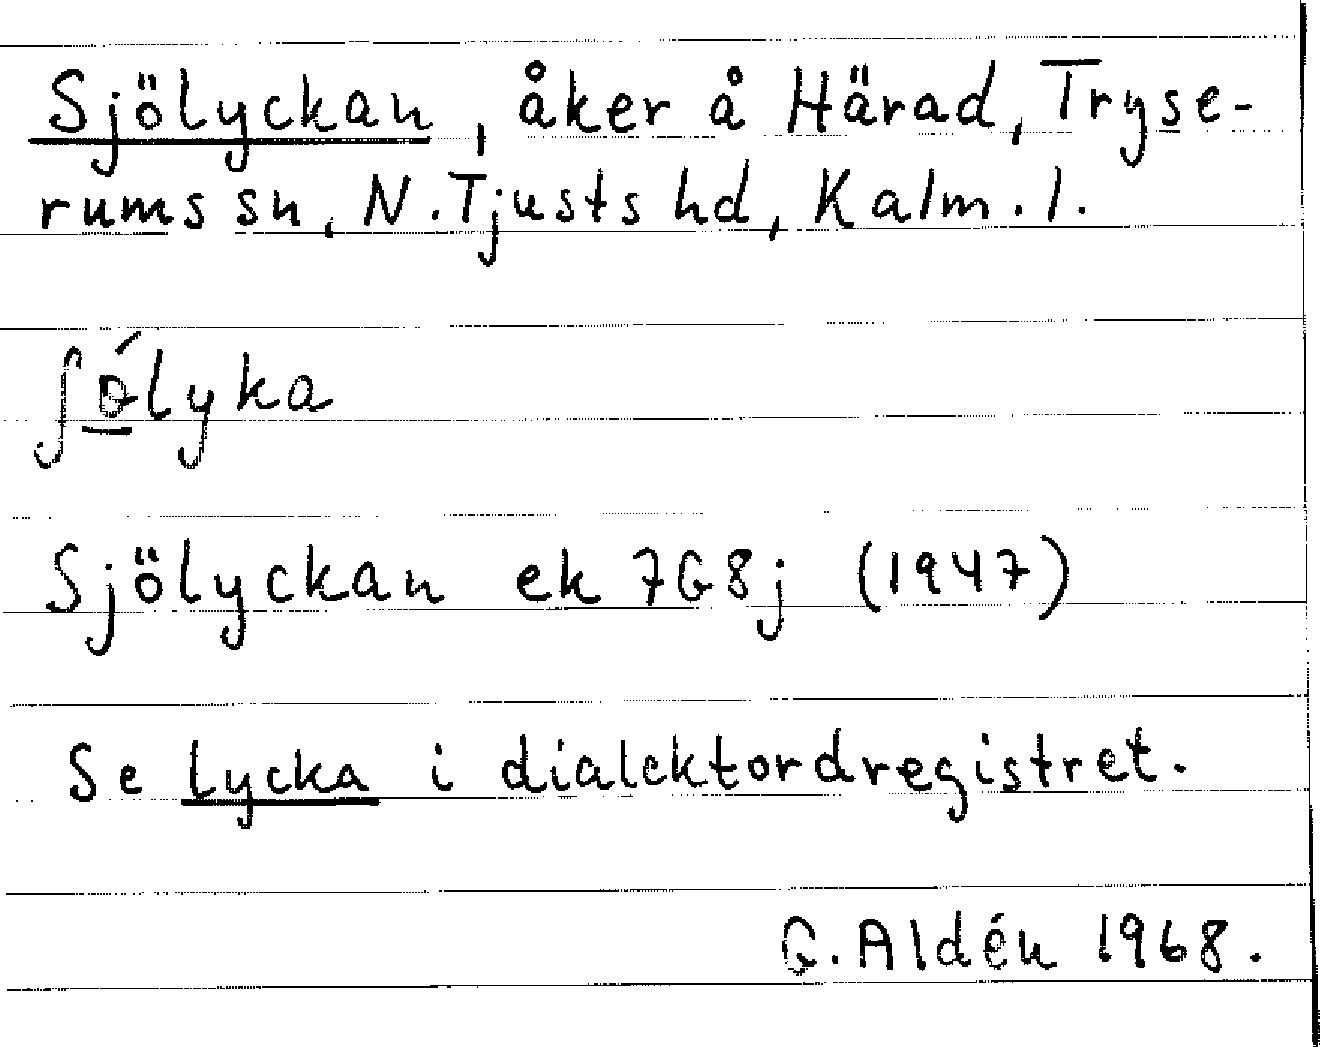 Sjölyckan, åker å Härad, Tryse-
rums sn, N. Tjusts hd, Kalm. l.
ʃɵ́lyka
Sjölyckan ek 7G8j (1947)
Se lycka i dialektordregistret.
G. Aldén 1968.